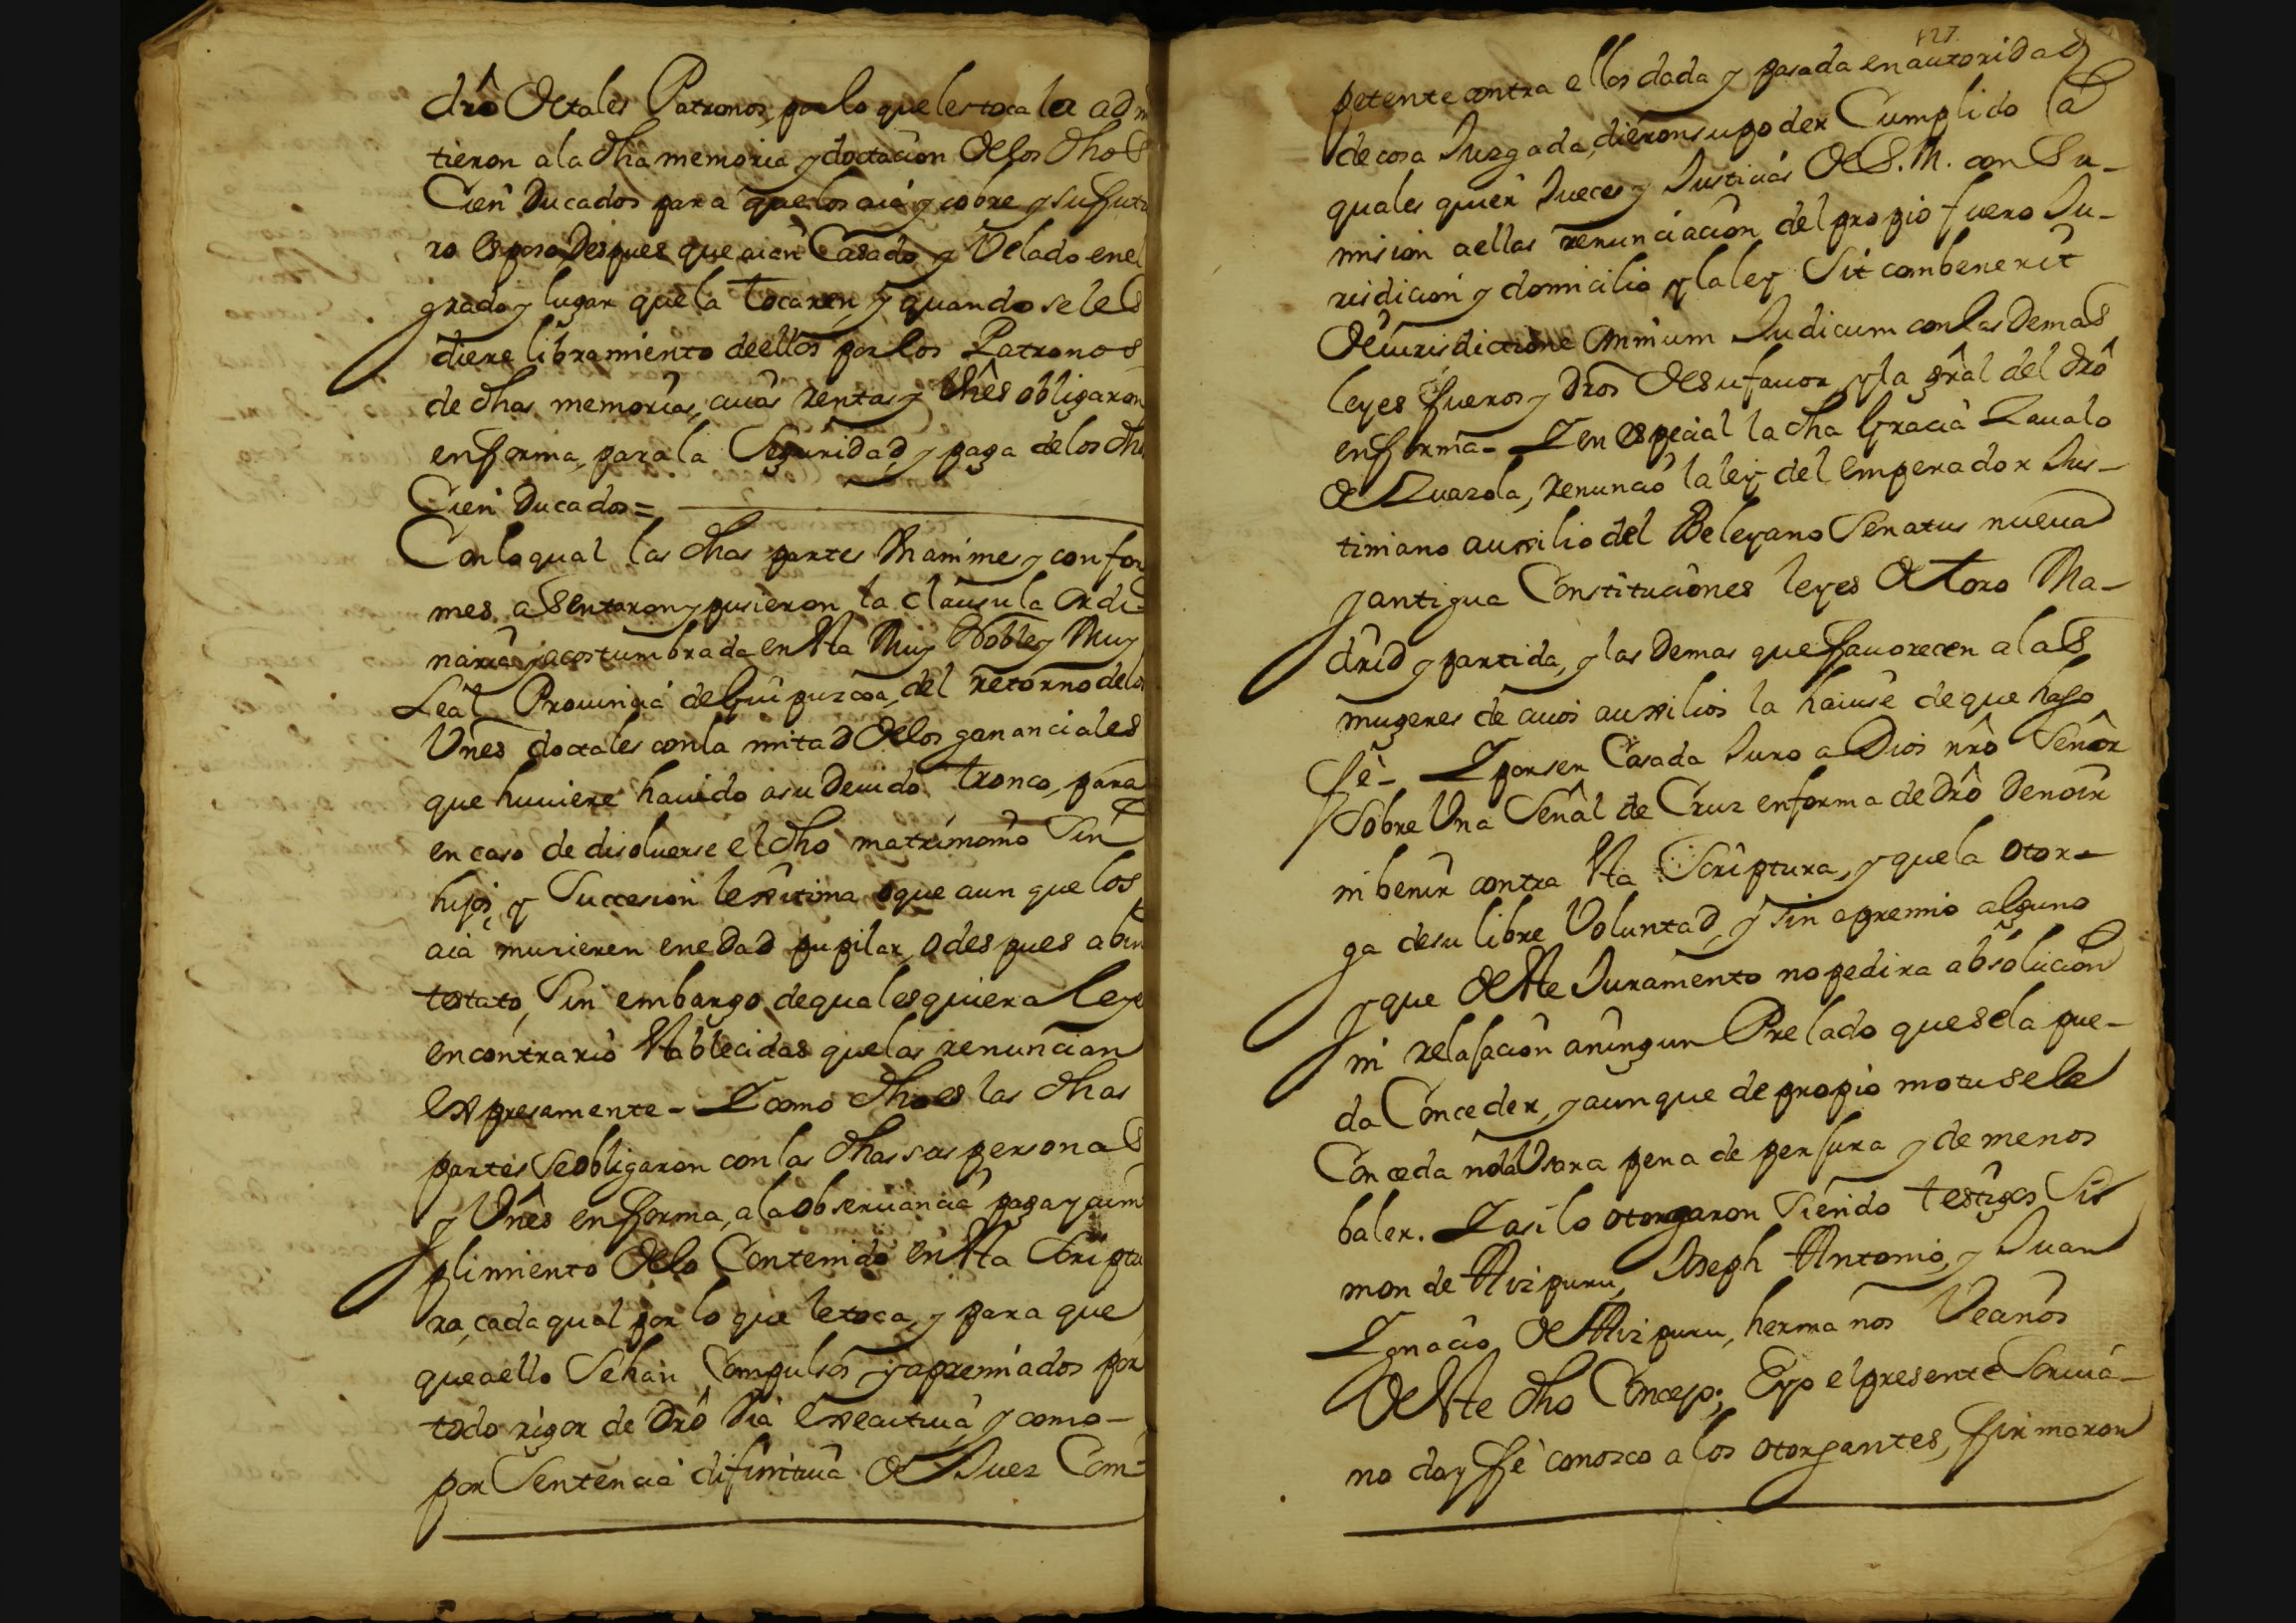 drô de tales Patronos, por lo que les toca la adm
tieron a la dha memoria, y dotacion de los dhos
Cien Ducados para que los aia y cobre y su futu
ro esposo, Despues que aian Casado y Velado en el
grado y lugar que la tocaren, y quando se les
diere libramiento de ellos por los Patronos
de dhas memorias, cuias rentas y Vnês obligaron
en forma, para la Seguridad, y paga de los dhõ
Cien Ducados =
Con lo qual las dhas partes Vnanimes y confor
mes, asentaron y pusieron la clausula ordi-
naria y acostumbrada en esta Muy Noble y Muy
Leal Prouincia de Guipuzcoa, del retorno de los
Vnes dotales con la mitad de los gananciales
que huuiere hauido a su deuido tronco, para
en caso de disoluerse el dho matrimonio Sin
hijos, y Succesion lexitima o que aun que los
aia murieren en edad pupilar, o des pues abin
testato, Sin embargo de quales quiera leyes
en contrario establecidas que las renuncian
expresamente - Y como dho es las dhas
partes Se obligaron con las dhas sus personas
y Vnês en forma, a la obseruancia paga y cum
plimiento de lo Contenido en esta Scriptu
ra, cada qual por lo que le toca, y para que
que a ello Sehan Compulsos y apremiados por
todo rigor de Drô Via executiua, y como-
por Sentencia difinitiua de Juez Com-
127.
petente contra ellos dada y pasada en autoridad
de cosa Juzgada, dieron su poder Cumplido a
quales quier Jueces y Justicias de S. M. con Su-
mision a ellas renunciacion del propio fuero Ju-
risdicion y domicilio y la ley Sit combenerit
de iurisdictione omnium Judicum con las demas
leyes fueros y Dros de su fauor y la grâl del Drô
en forma - Y en especial la dha Gracia Zaualo
de Zuazola, renuncio la ley del Emperador Jus-
tiniano auxilio del Beleyano Senatus nueua
y antigua Constituciones leyes de Toro Ma-
drid y partida, y las Demas que fauorecen a las
mugeres de cuios auxilios la hauise de que hago
fê - Y por ser Casada Juro a Dios nrô Señor
y Sobre Vna Señal de Cruz en forma de Drô de no ir
ni benir contra esta Scriptura, y que la otor-
ga de su libre Voluntad, y sin apremio alguno
y que de este Juramento no pedira absolucion
ni relajacion aningun Prelado que se la pue-
da Conceder, y aunque de propio motu se le
Conceda no la Vsara pena de perjura y de menos
baler. Y asi lo otorgaron Siendo testigos Si-
mon de Aizpuru, Joseph Antonio, y Juan
Ygnacio de Aizpuru, hermanos Vecinos
de este dho Concejo; E yo el presente Scriua-
no doy fê conozco a los otorgantes, firmaron